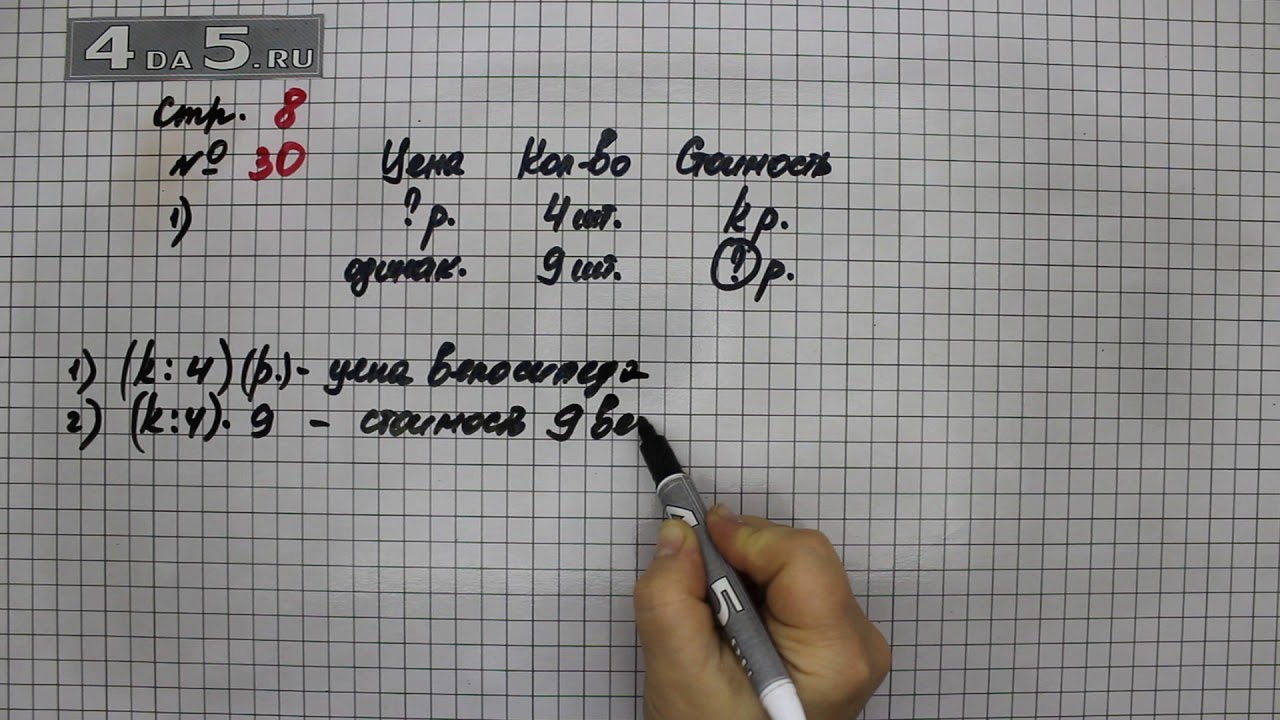 4 DA 5.RU
Стр. 8
№ 30
Цена Кол-во Стоимость
1) ? р. 4 шт. k р.
одинак. 9 шт. ? р.
1) (k : 4) (р.) - цена велосипеда
2) (k : 4) · 9 - стоимость 9 ве
4
5